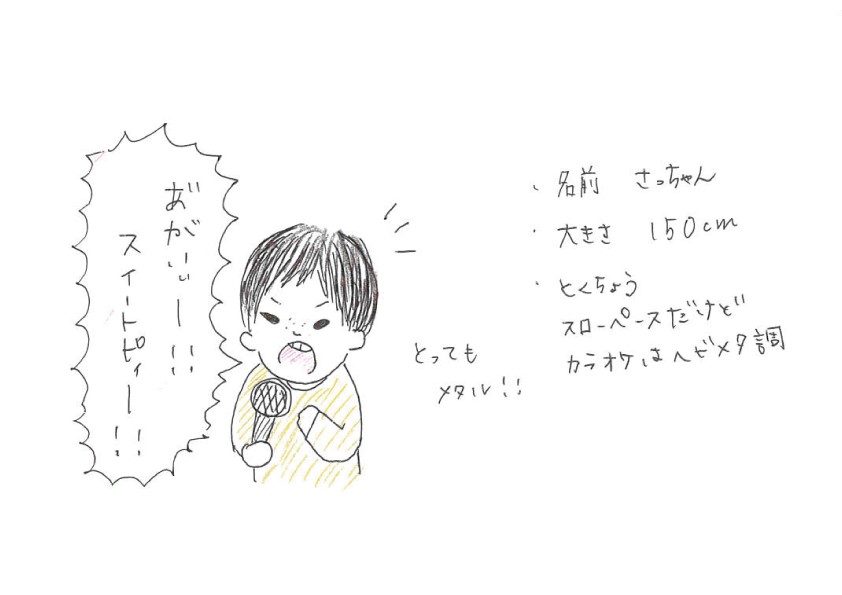 あ゛がぃぃー!!
スイートピィー!!
とっても
メタル!!
・名前 さっちゃん
・大きさ 150cm
・とくちょう
スローペースだけど
カラオケはヘビメタ調